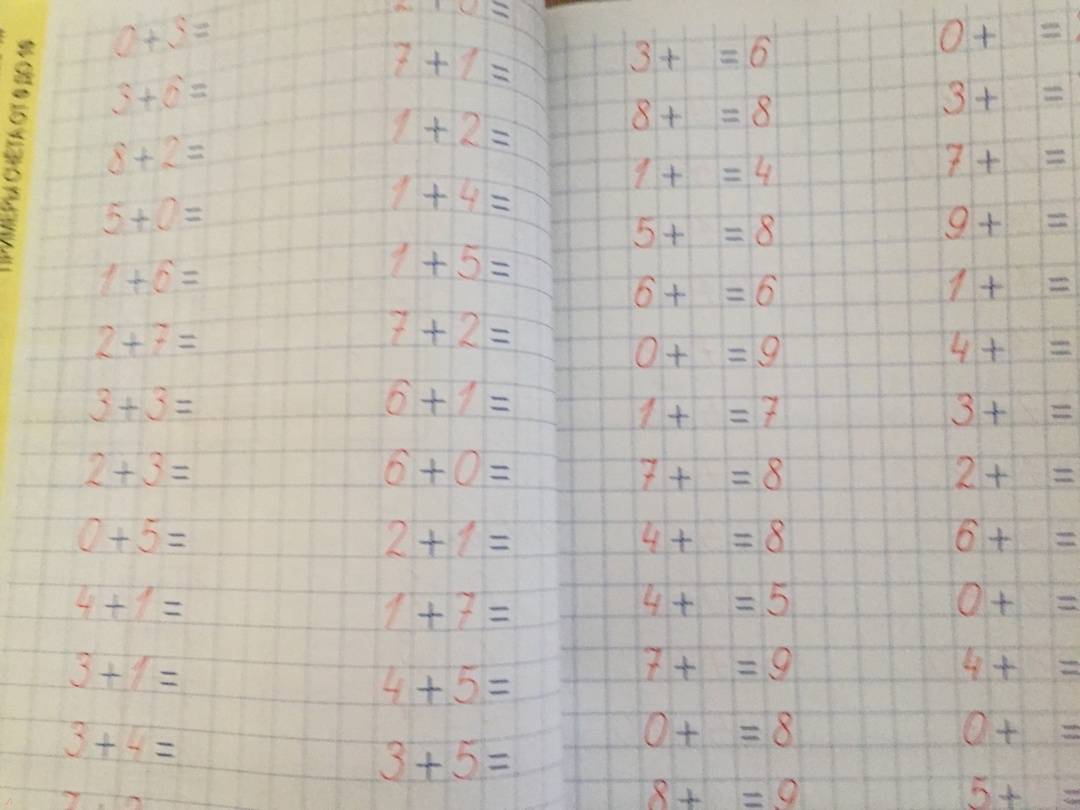 ПРИМЕРЫ СЧЕТА ОТ 0 ДО 10
0+3=
3+6=
8+2=
5+0=
1+6=
2+7=
3+3=
2+3=
0+5=
4+1=
3+1=
3+4=
7+1=
1+2=
1+4=
1+5=
7+2=
6+1=
6+0=
2+1=
1+7=
4+5=
3+5=
3+ =6
8+ =8
1+ =4
5+ =8
6+ =6
0+ =9
1+ =7
7+ =8
4+ =8
4+ =5
7+ =9
0+ =8
8+ =9
0+ =
3+ =
7+ =
9+ =
1+ =
4+ =
3+ =
2+ =
6+ =
0+ =
4+ =
0+ =
5+ =